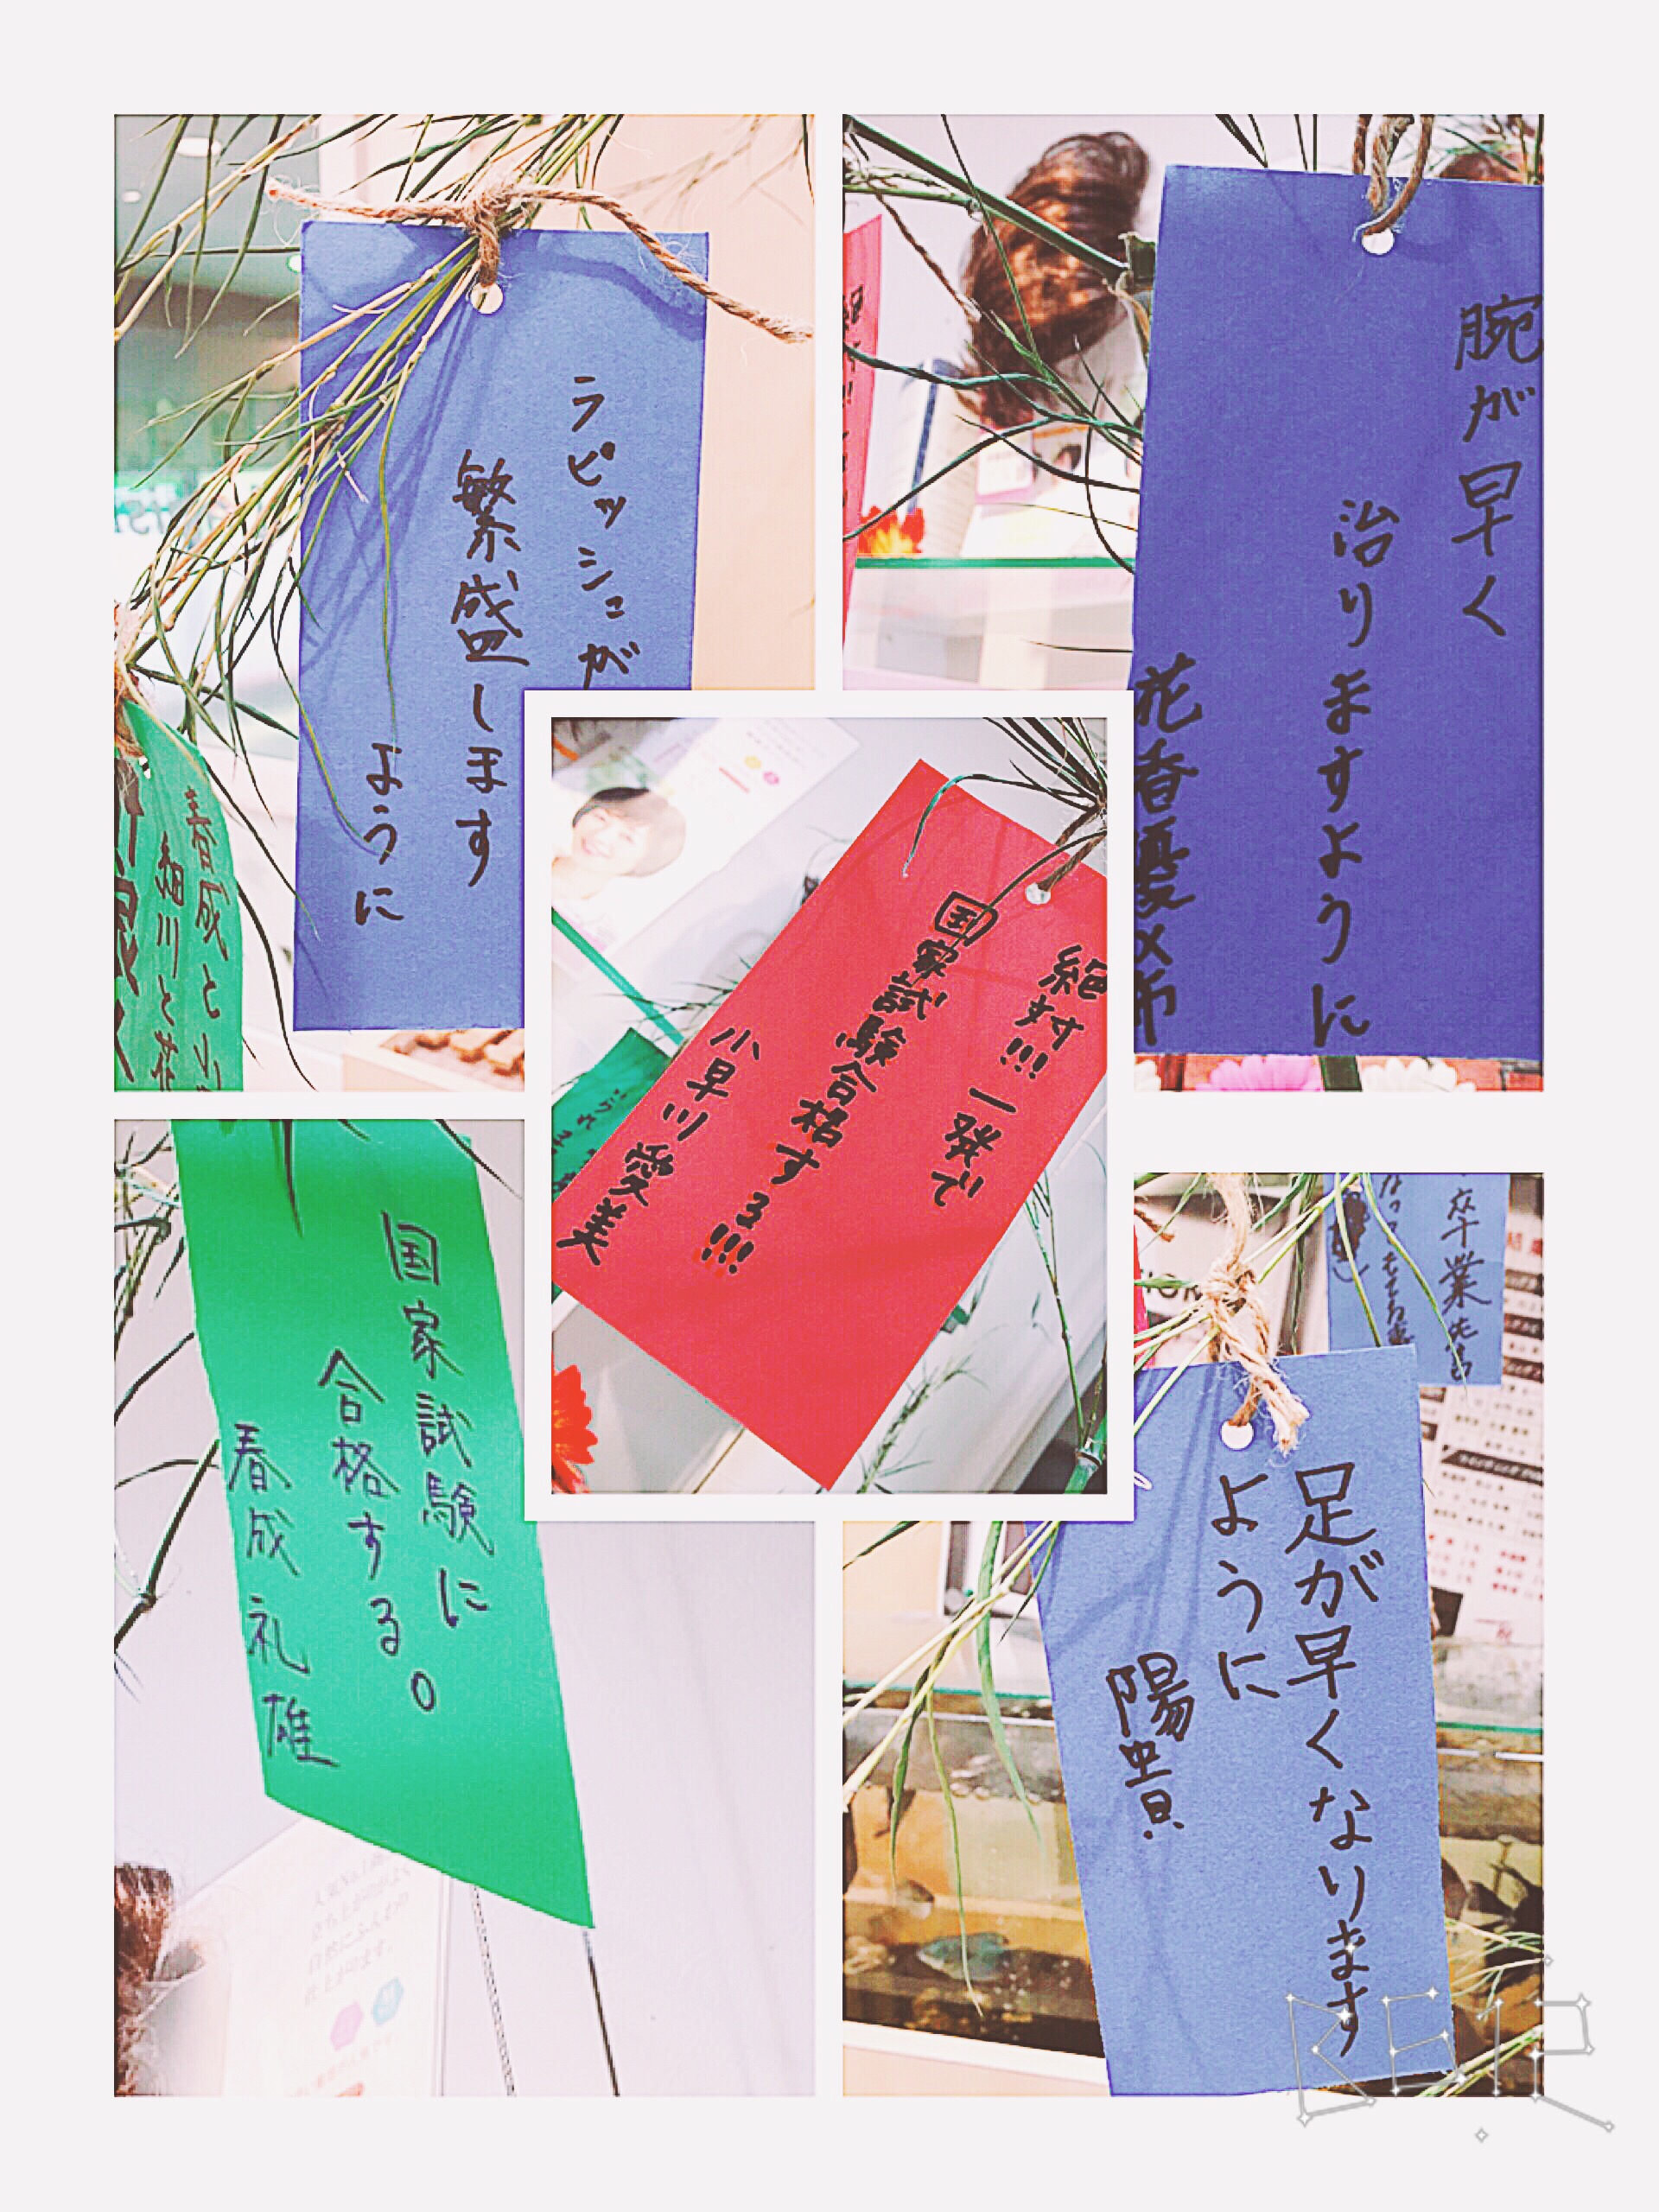 ラピッシュが
繁盛します
ように
春成と
細川と花
腕が早く
治りますように
花香優
絶対!!! 一発で
国家試験合格する!!!
小早川 愛美
国家試験に
合格する。
春成 礼雄
卒業
足が早くなります
ように
陽貴